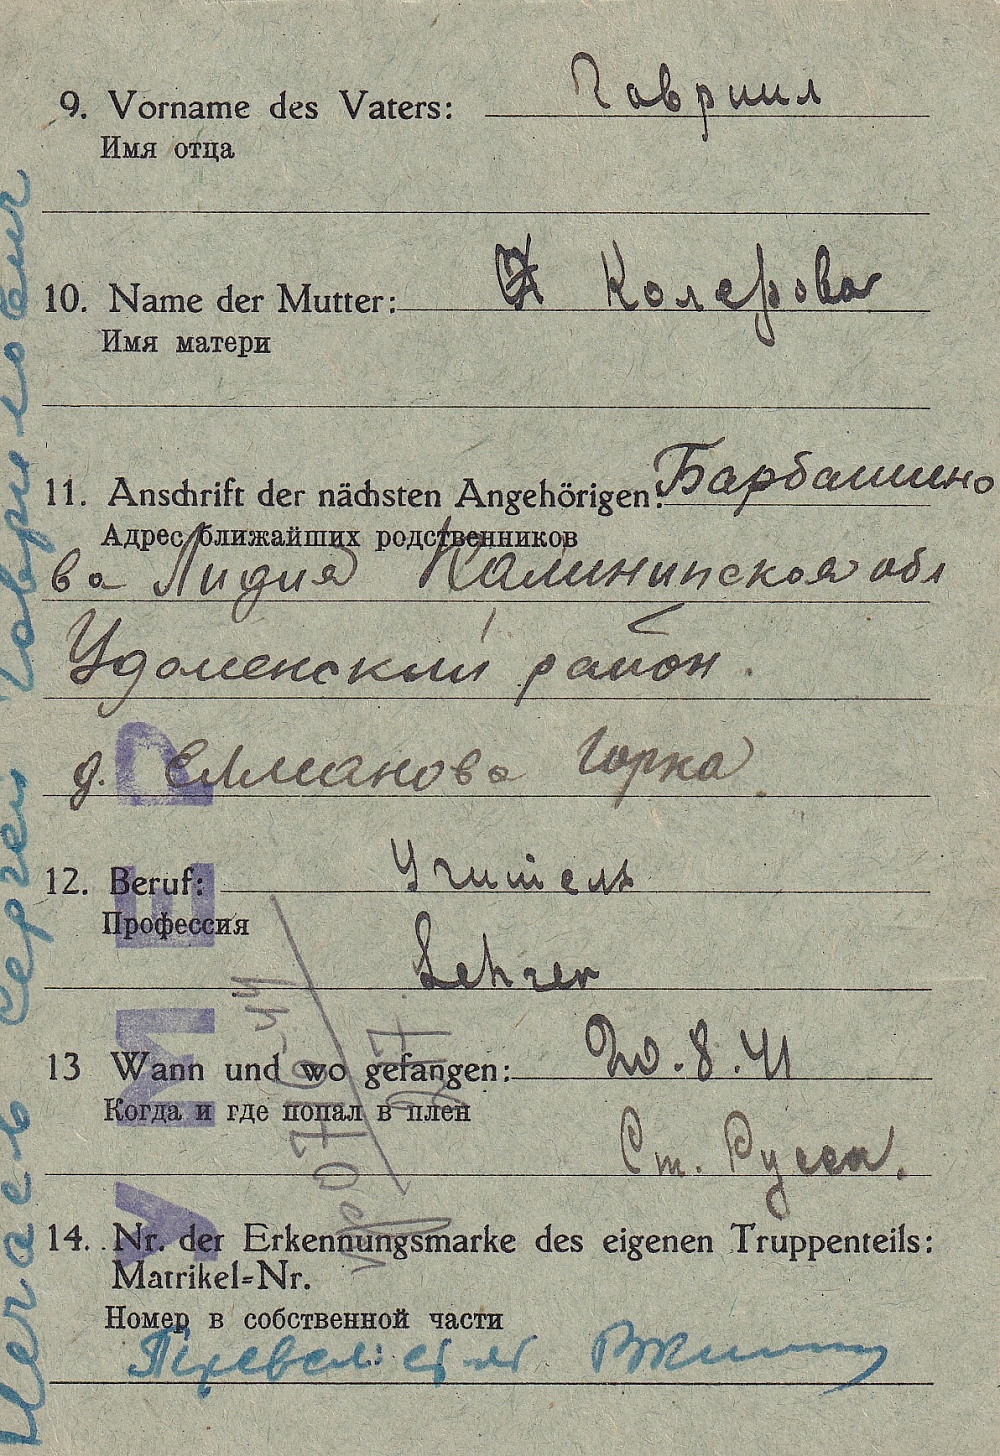 9. Vorname des Vaters: Гавриил
Имя отца
10. Name der Mutter: Колерова
Имя матери
11. Anschrift der nächsten Angehörigen: Барбашино
Адрес ближайших родственников
ва Лидия Калининская обл
Удоменский район.
д. Елманова Горка.
12. Beruf: Учитель
Профессия
Lehrer
13 Wann und wo gefangen: 20.8.41
Когда и где попал в плен
Ст. Русса.
14. Nr. der Erkennungsmarke des eigenen Truppenteils:
Matrikel=Nr.
Номер в собственной части
Сергей Гаврилович
УМЕР